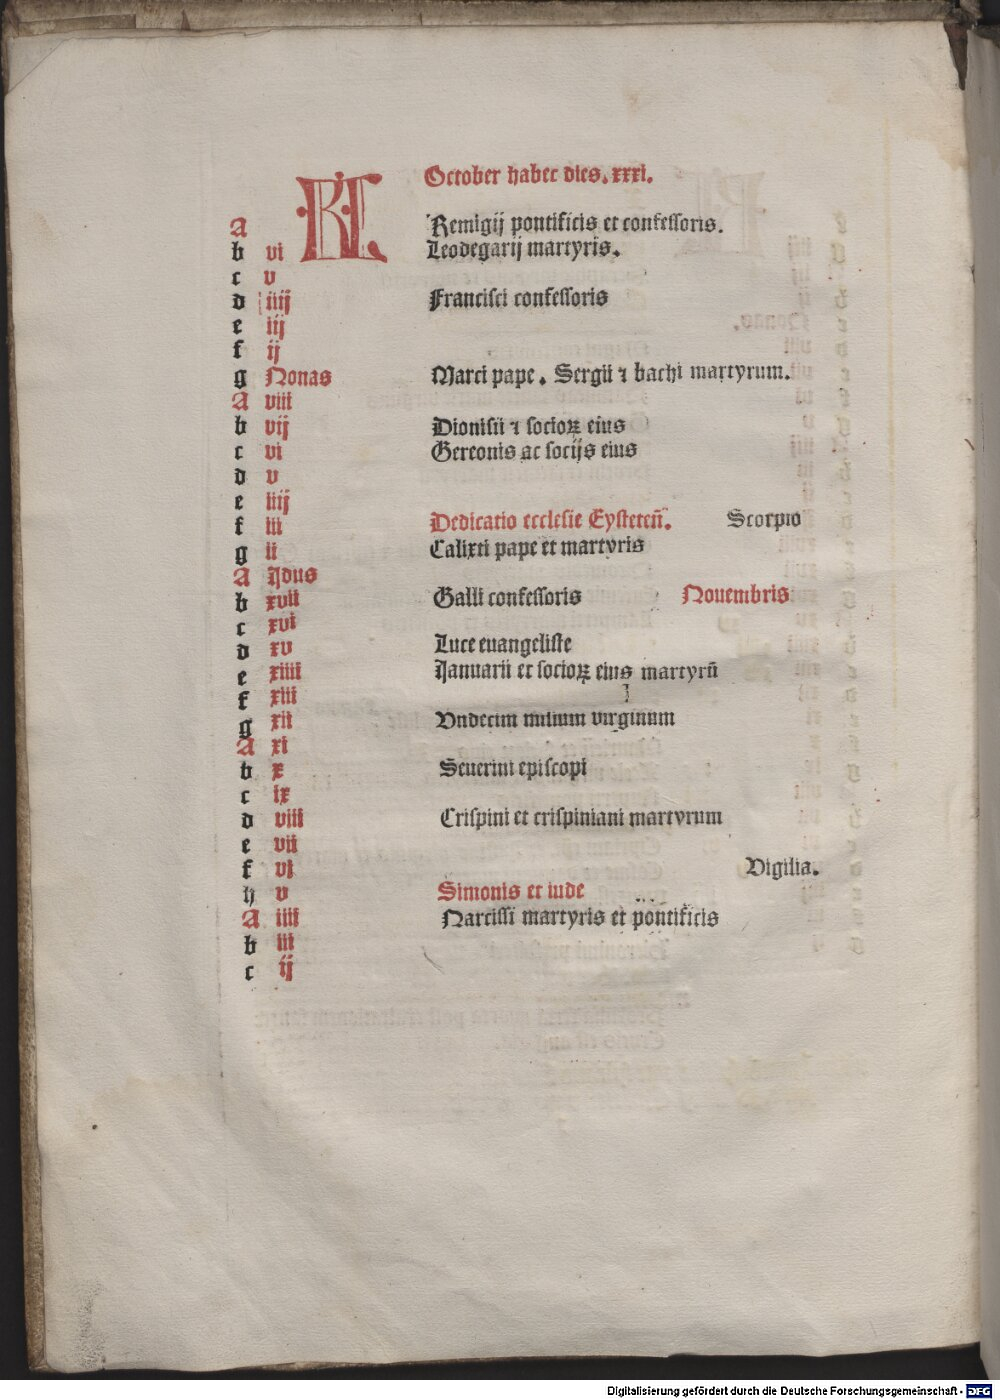 KL October habet dies. xxxi.
A Remigij pontificis et confessoris.
b vi Leodegarij martyris.
c v
d iiij Francisci confessoris
e iij
f ij
g Nonas Marci pape. Sergii ⁊ bachi martyrum.
A viii
b vij Dionisii ⁊ socioꝝ eius
c vi Gereonis ac socijs eius
d v
e iiij
f iii Dedicatio ecclesie Eysteten̄. Scorpio
g ii Calixti pape et martyris
A Idus
b xvii Galli confessoris Nouembris
c xvi
d xv Luce euangeliste
e xiiii Januarii et socioꝝ eius martyrū
f xiii
g xii Vndecim milium virginum
A xi
b x Seuerini episcopi
c ix
d viii Crispini et crispiniani martyrum
e vii
f vi Vigilia.
h v Simonis et iude
A iiii Narcissi martyris et pontificis
b iii
c ij
Digitalisierung gefördert durch die Deutsche Forschungsgemeinschaft - DFG